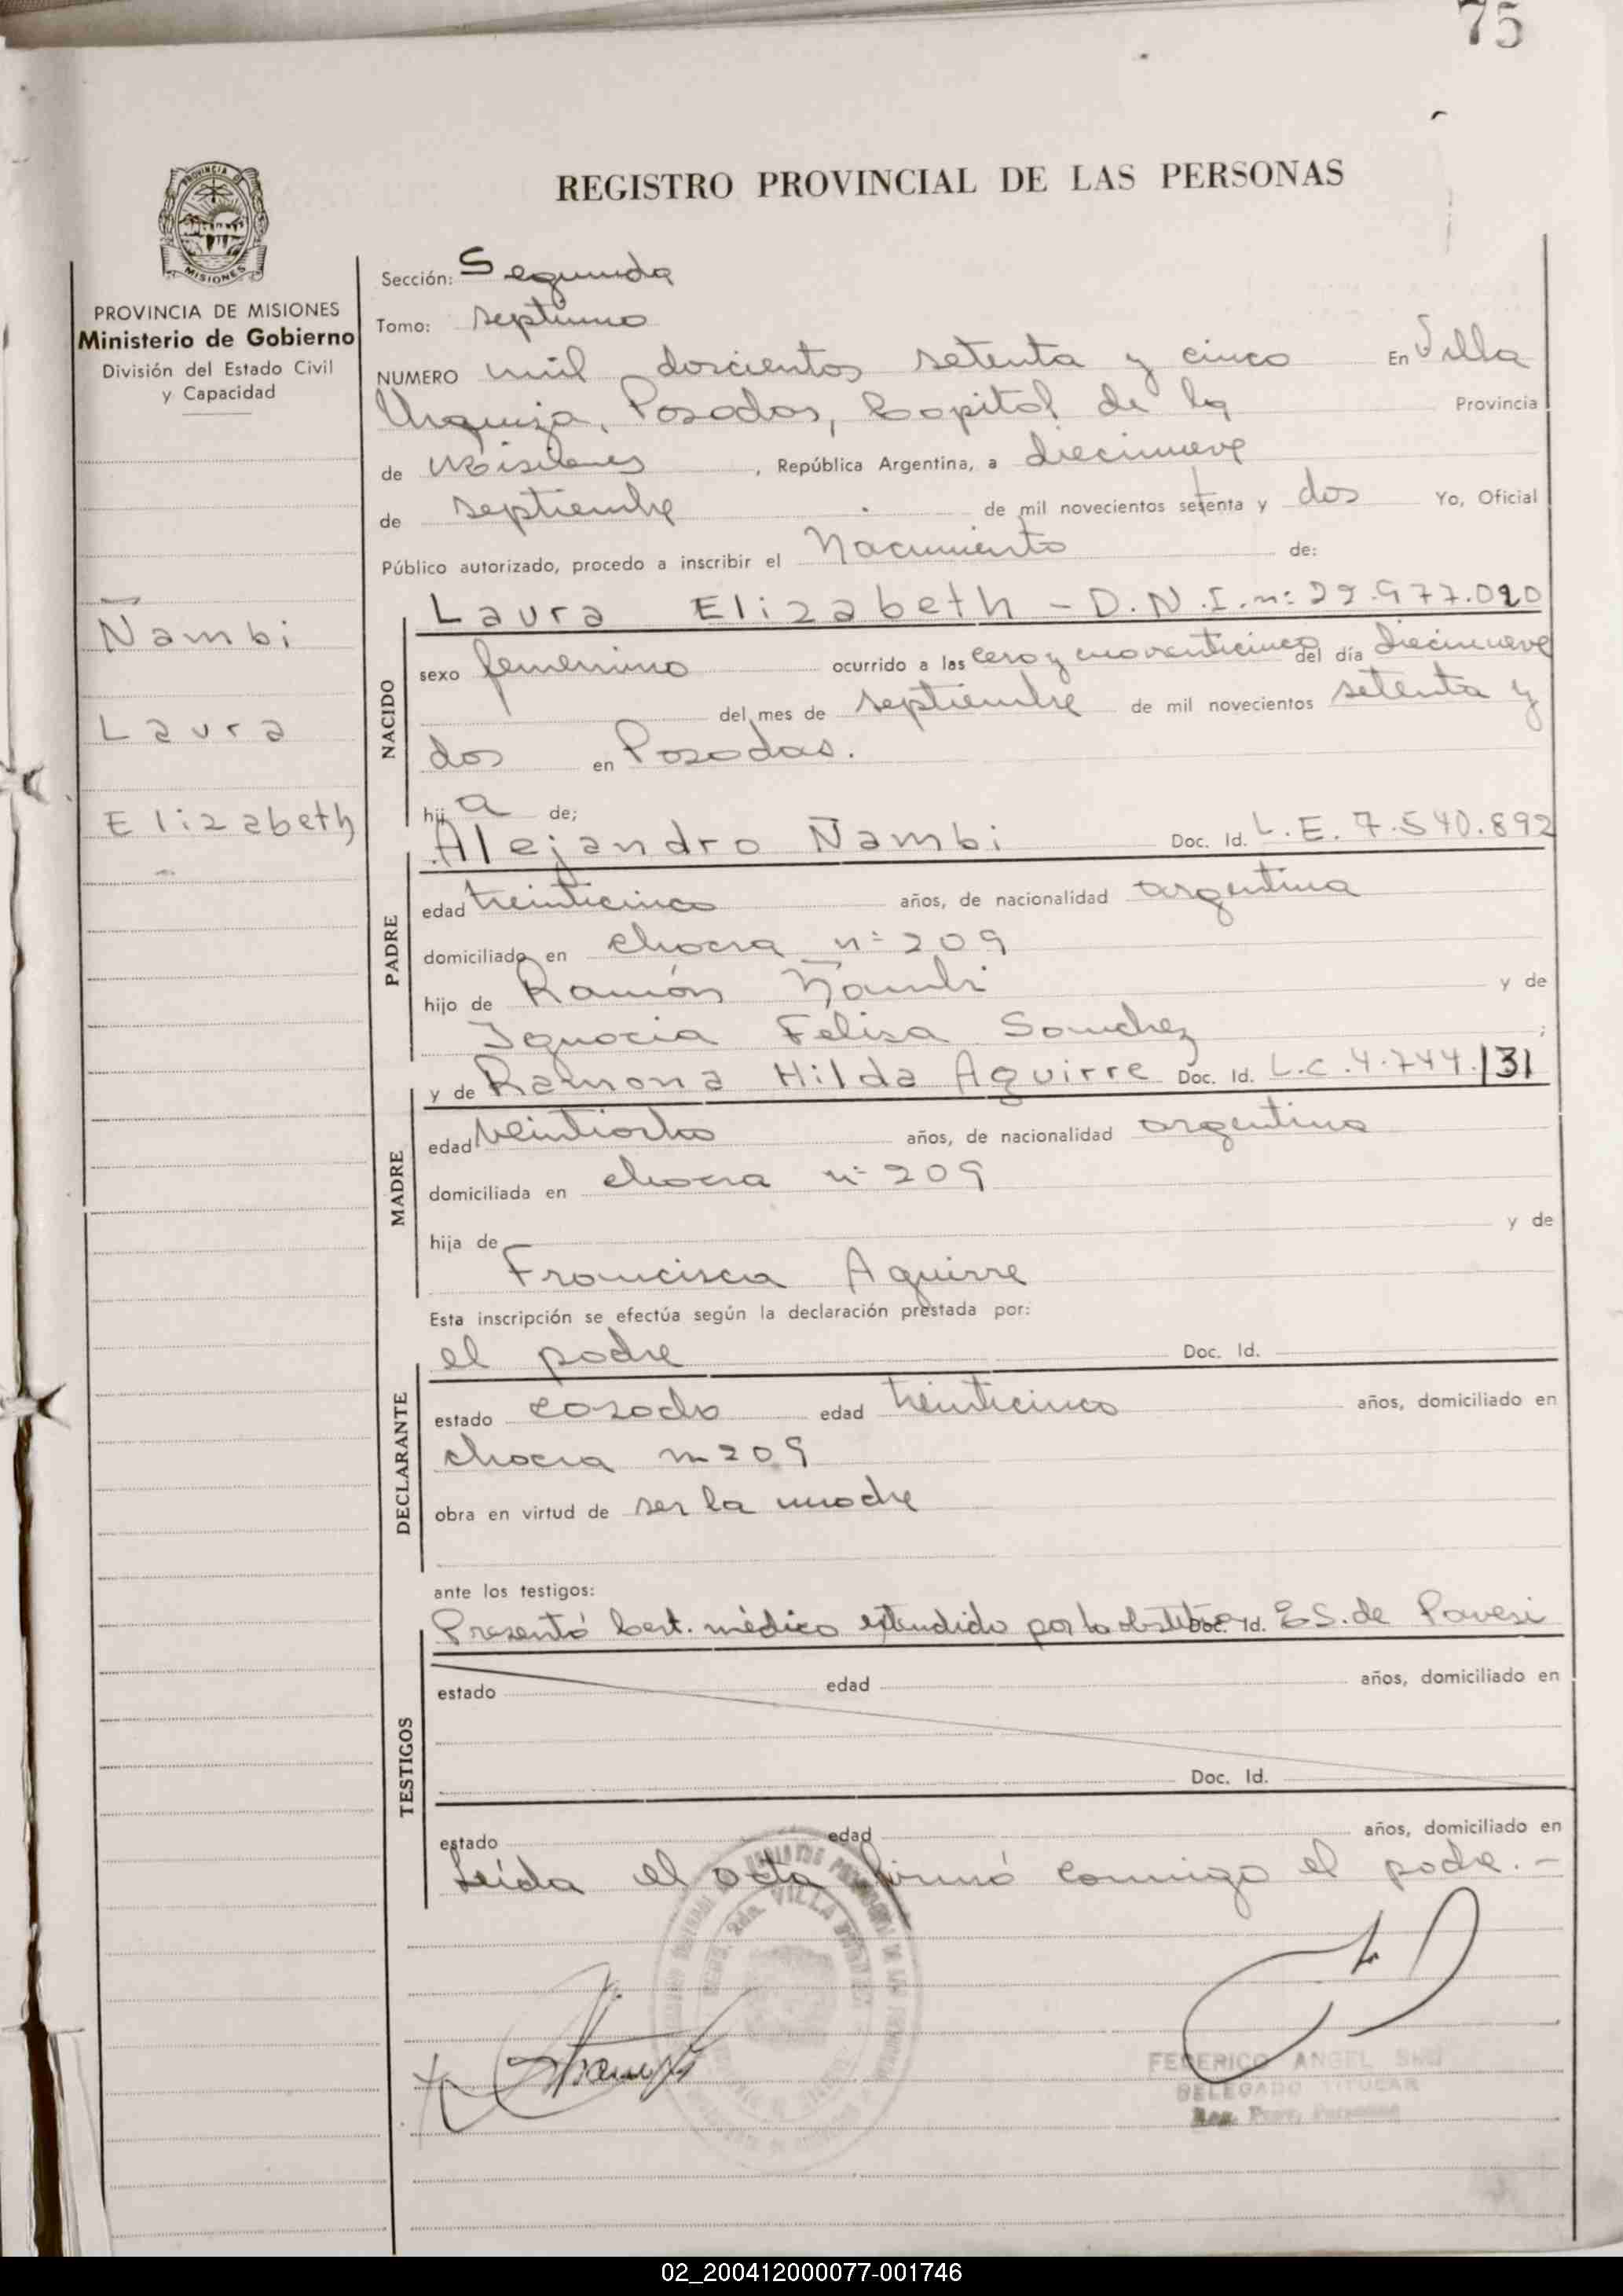 75
REGISTRO PROVINCIAL DE LAS PERSONAS
PROVINCIA DE MISIONES
Ministerio de Gobierno
División del Estado Civil
y Capacidad
Ñambi
Laura
Elizabeth
Sección: Segunda
Tomo: septimo
NUMERO mil doscientos setenta y cinco En Villa
Urquiza, Posadas, Capital de la Provincia
de Misiones, República Argentina, a diecinueve
de septiembre de mil novecientos setenta y dos Yo, Oficial
Público autorizado, procedo a inscribir el Nacimiento de:
NACIDO
Laura Elizabeth - D.N.I. n: 22.977.020
sexo femenino ocurrido a las cero y cuarenticinco del día diecinueve
del mes de septiembre de mil novecientos setenta y
dos en Posadas.
hij a de;
PADRE
Alejandro Ñambi Doc. Id. L.E. 7.540.892
edad treinticinco años, de nacionalidad argentina
domiciliado en chacra nº 209
hijo de Ramón Ñambi y de
Ignacia Felisa Sanchez;
MADRE
y de Ramona Hilda Aguirre Doc. Id. L.C. 4.744.131
edad veintiocho años, de nacionalidad argentina
domiciliada en chacra nº 209
hija de y de
Francisca Aguirre
Esta inscripción se efectúa según la declaración prestada por:
DECLARANTE
el padre Doc. Id.
estado casado edad treinticinco años, domiciliado en
chacra n 209
obra en virtud de ser la madre
ante los testigos:
TESTIGOS
Presentó Cert. médico extendido por la obstetra Doc. Id. E.S. de Pavesi
estado edad años, domiciliado en
Doc. Id.
estado edad años, domiciliado en
Leida el acta firmó conmigo el padre.-
VILLA
FEDERICO ANGEL
DELEGADO TITULAR
Reg. Prov. Personas
02_200412000077-001746